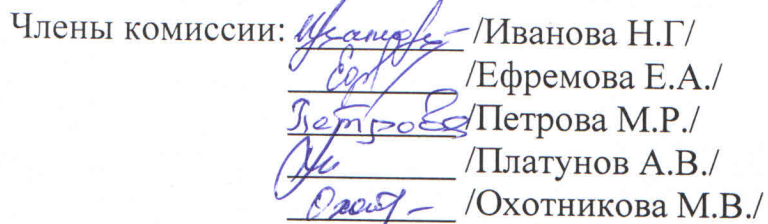 Члены комиссии: /Иванова Н.Г/
/Ефремова Е.А./
Петрова /Петрова М.Р./
/Платунов А.В./
/Охотникова М.В./